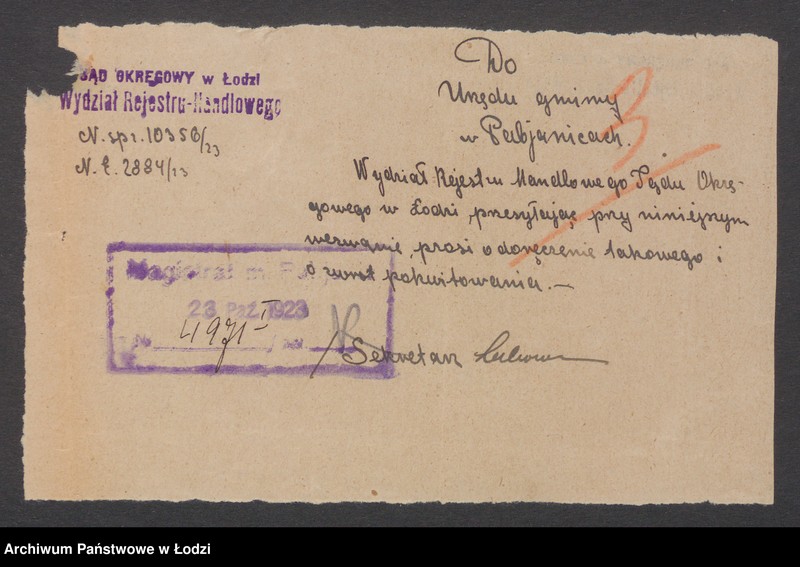 SĄD OKRĘGOWY w Łodzi
Wydział Rejestru-Handlowego
N. spr. 10356/23
N. E. 2884/23
Do
Urzędu gminy
w Pabjanicach.
3
Wydział Rejestru Handlowego Sądu Okrę-
gowego w Łodzi, przesyłając przy niniejszym
wezwanie, prosi o doręczenie takowego i
o zwrot pokwitowania. —
Magistrat m.
23 PAŹ. 1923
№ 4971 I
/ Sekretarz
Archiwum Państwowe w Łodzi